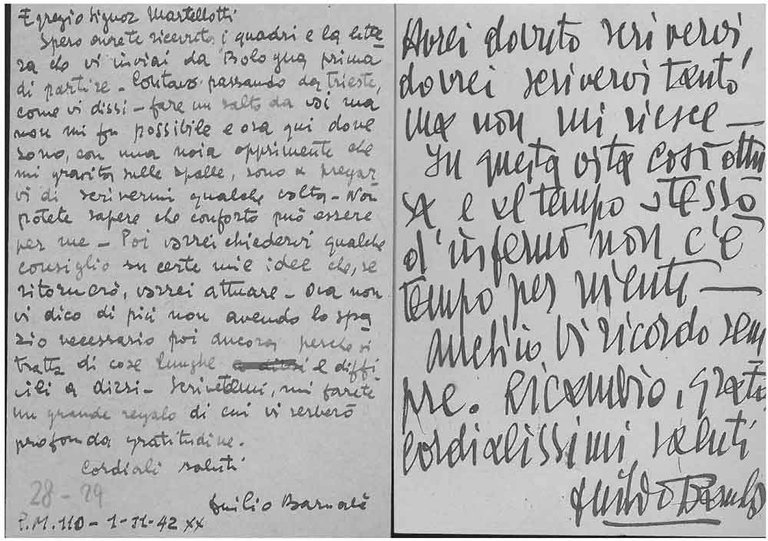 Egregio Signor Martellotti
Spero avrete ricevuto i quadri e la lette
ra che vi inviai da Bologna prima
di partire - Contavo passando da Trieste,
come vi dissi - fare un salto da voi ma
non mi fu possibile e ora qui dove
sono, con una noia opprimente che
mi gravita sulle spalle, sono a pregar
vi di scrivermi qualche volta - Non
potete sapere che conforto può essere
per me - Poi vorrei chiedervi qualche
consiglio su certe mie idee che, se
ritornerò, vorrei attuare - Ora non
vi dico di più non avendo lo spa
zio necessario poi ancora perché si
tratta di cose lunghe e diffi
cili a dirsi - Scrivetemi, mi farete
un grande regalo di cui vi serberò
profonda gratitudine.
Cordiali saluti
28 - 29
P.M. 110 - 1-11-42 XX
Avrei dovuto scrivervi,
dovrei scrivervi tanto
ma non mi riesce -
In questa vita così ottu
sa e al tempo stesso
d'inferno non c'è
tempo per niente -
Vi ricordo sem
pre. Ricambio, grato
cordialissimi saluti